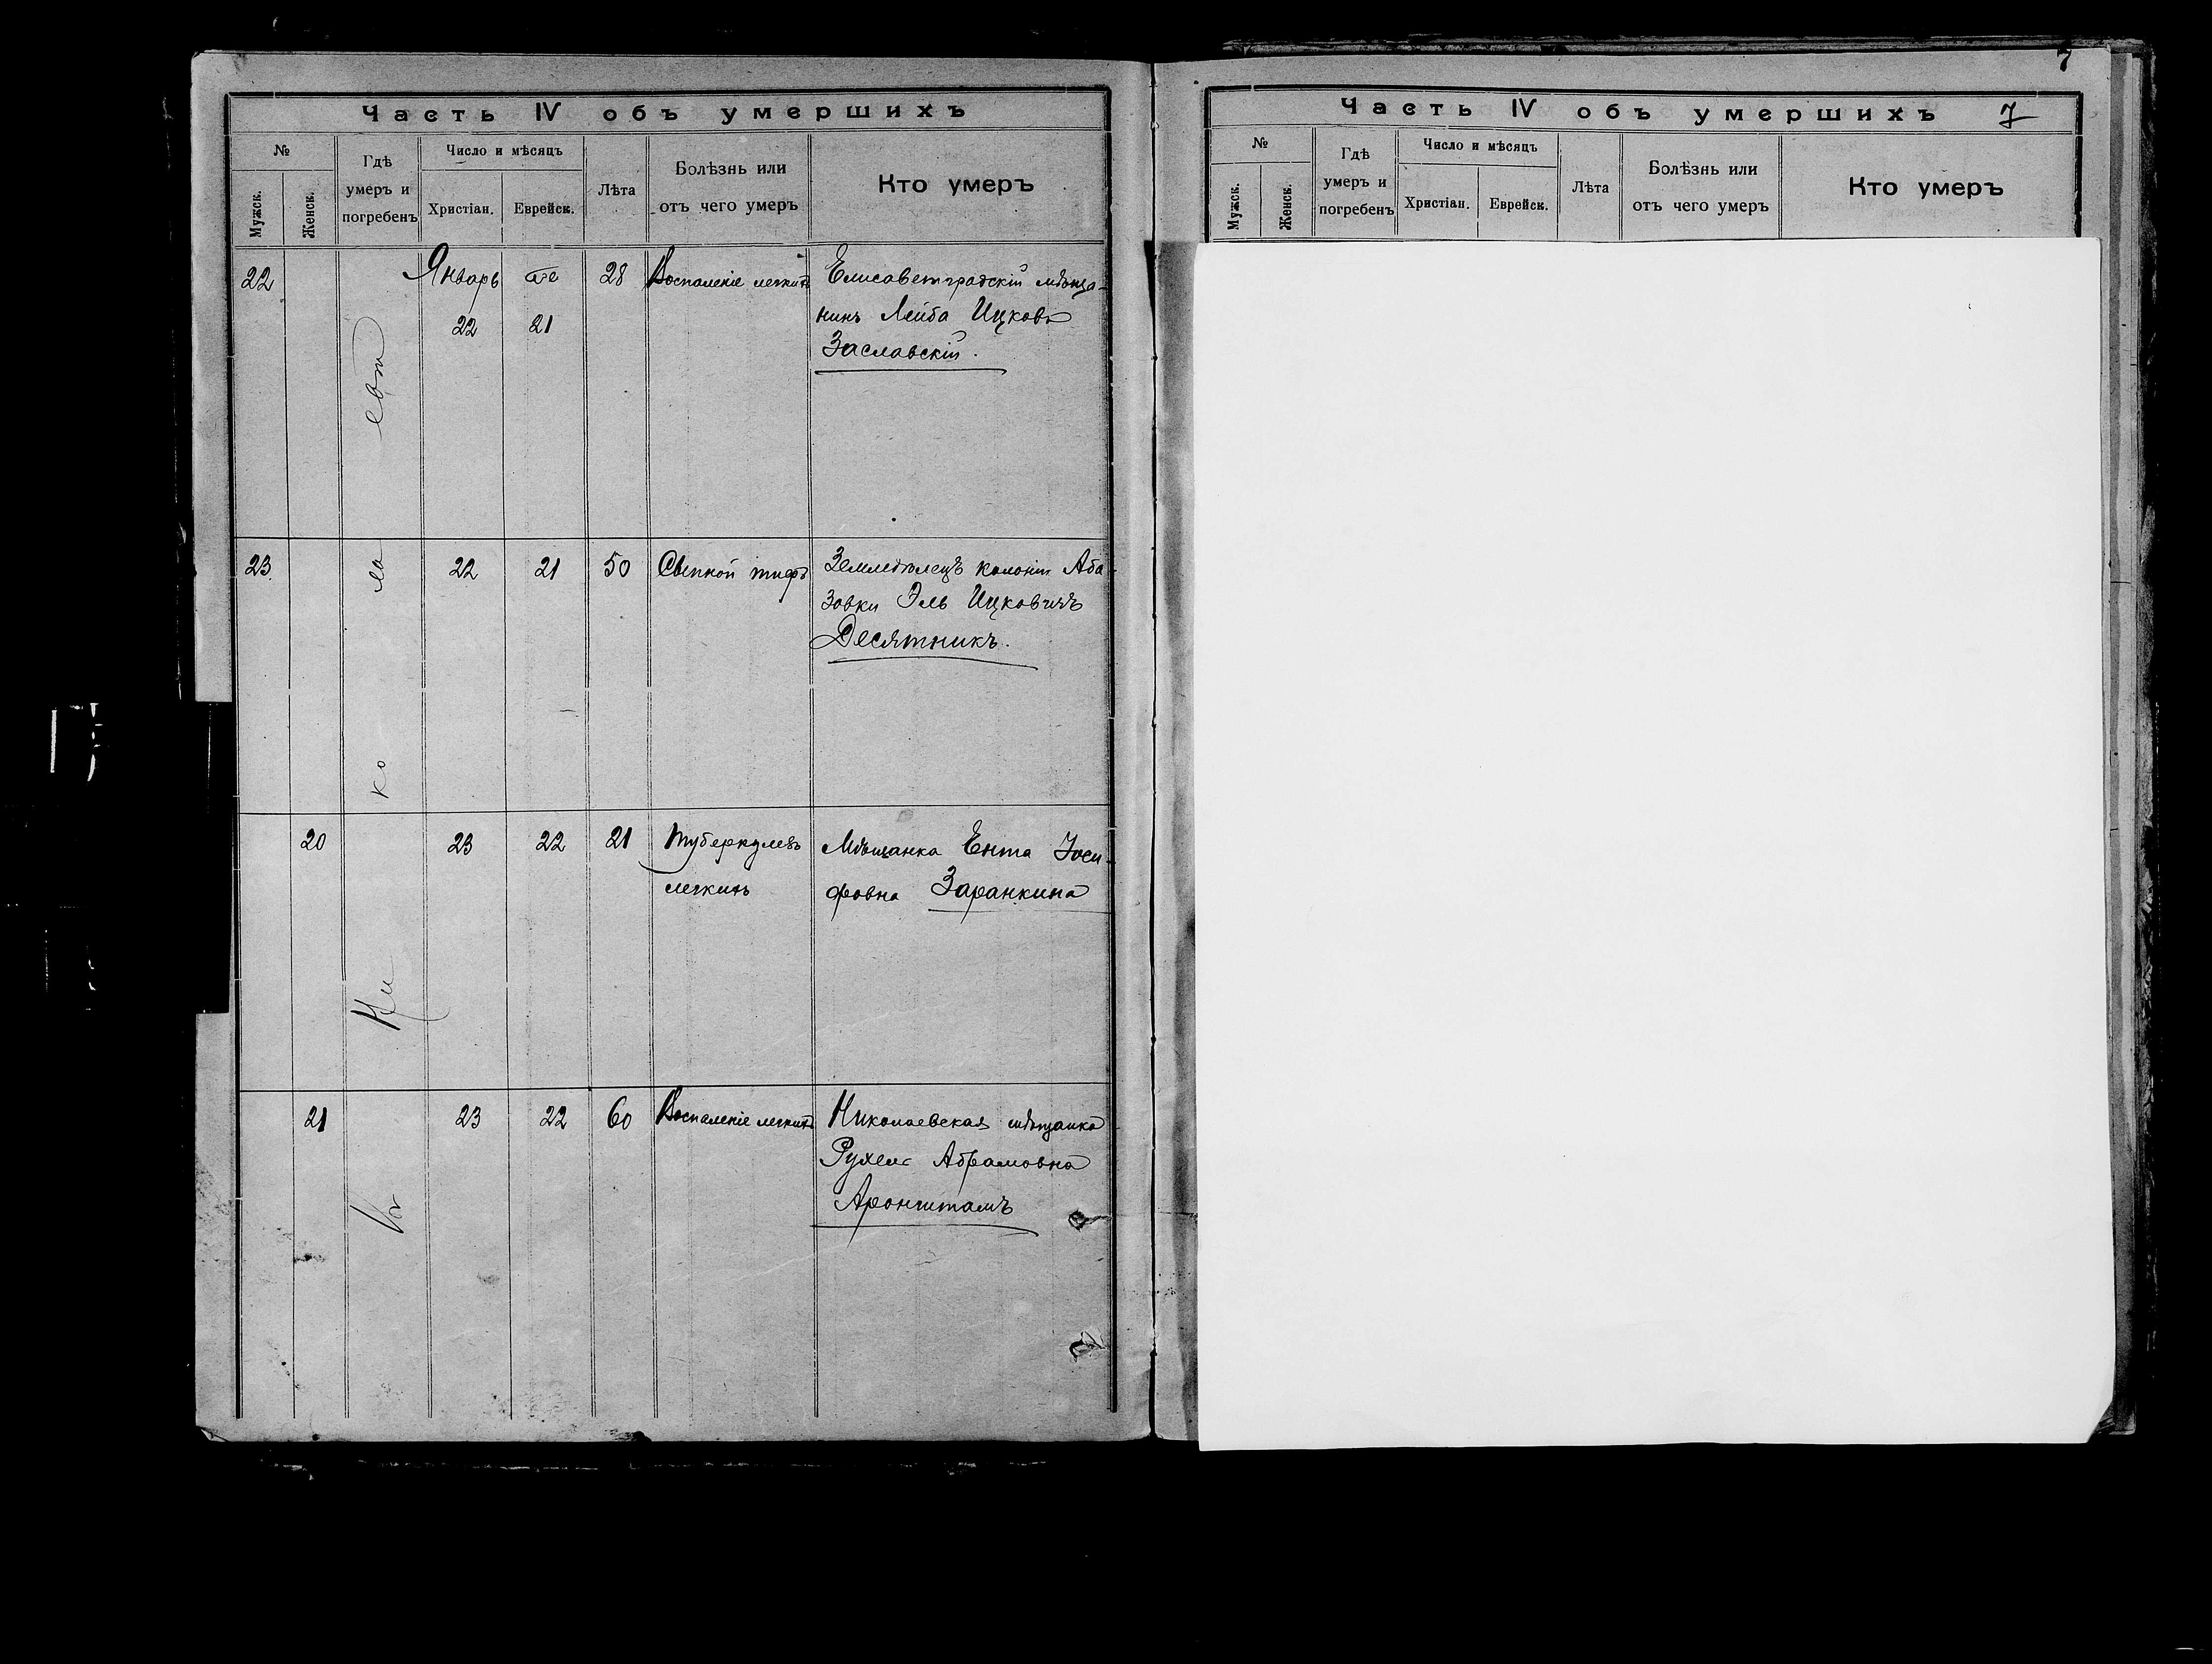 Часть IV объ умершихъ
№
Мужск.
Женск.
Гдѣ
умеръ и
погребенъ
Число и мѣсяцъ
Христіан.
Еврейск.
Лѣта
Болѣзнь или
отъ чего умеръ
Кто умеръ
22
Январь
22
21
28
Воспаленіе легкихъ
Елисаветградскій мѣща-
нинъ Лейба Ицковъ
Заславскій.
23
22
21
50
Сыпной тифъ
Земледѣлецъ колоніи Аба
зовки Эль Ицковичъ
Десятникъ.
20
23
22
21
Туберкулезъ
легкихъ
Мѣщанка Ента Іоси-
фовна Заранкина
21
23
22
60
Воспаленіе легкихъ
Николаевская мѣщанка
Рухель Абрамовна
Аронштамъ
Въ Ни ко ла евѣ
7
Часть IV объ умершихъ 7
№
Мужск.
Женск.
Гдѣ
умеръ и
погребенъ
Число и мѣсяцъ
Христіан.
Еврейск.
Лѣта
Болѣзнь или
отъ чего умеръ
Кто умеръ